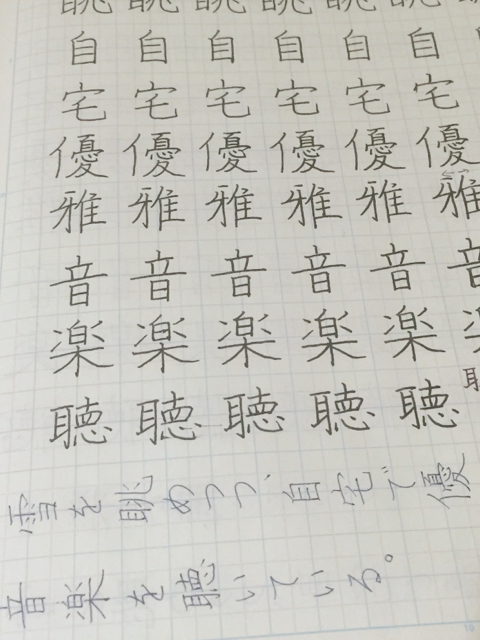 自自自自自自
宅宅宅宅宅宅
優優優優優優
雅雅雅雅雅雅
音音音音音
楽楽楽楽楽
聴聴聴聴聴
雪を眺めつつ、自宅で優
音楽を聴いている。